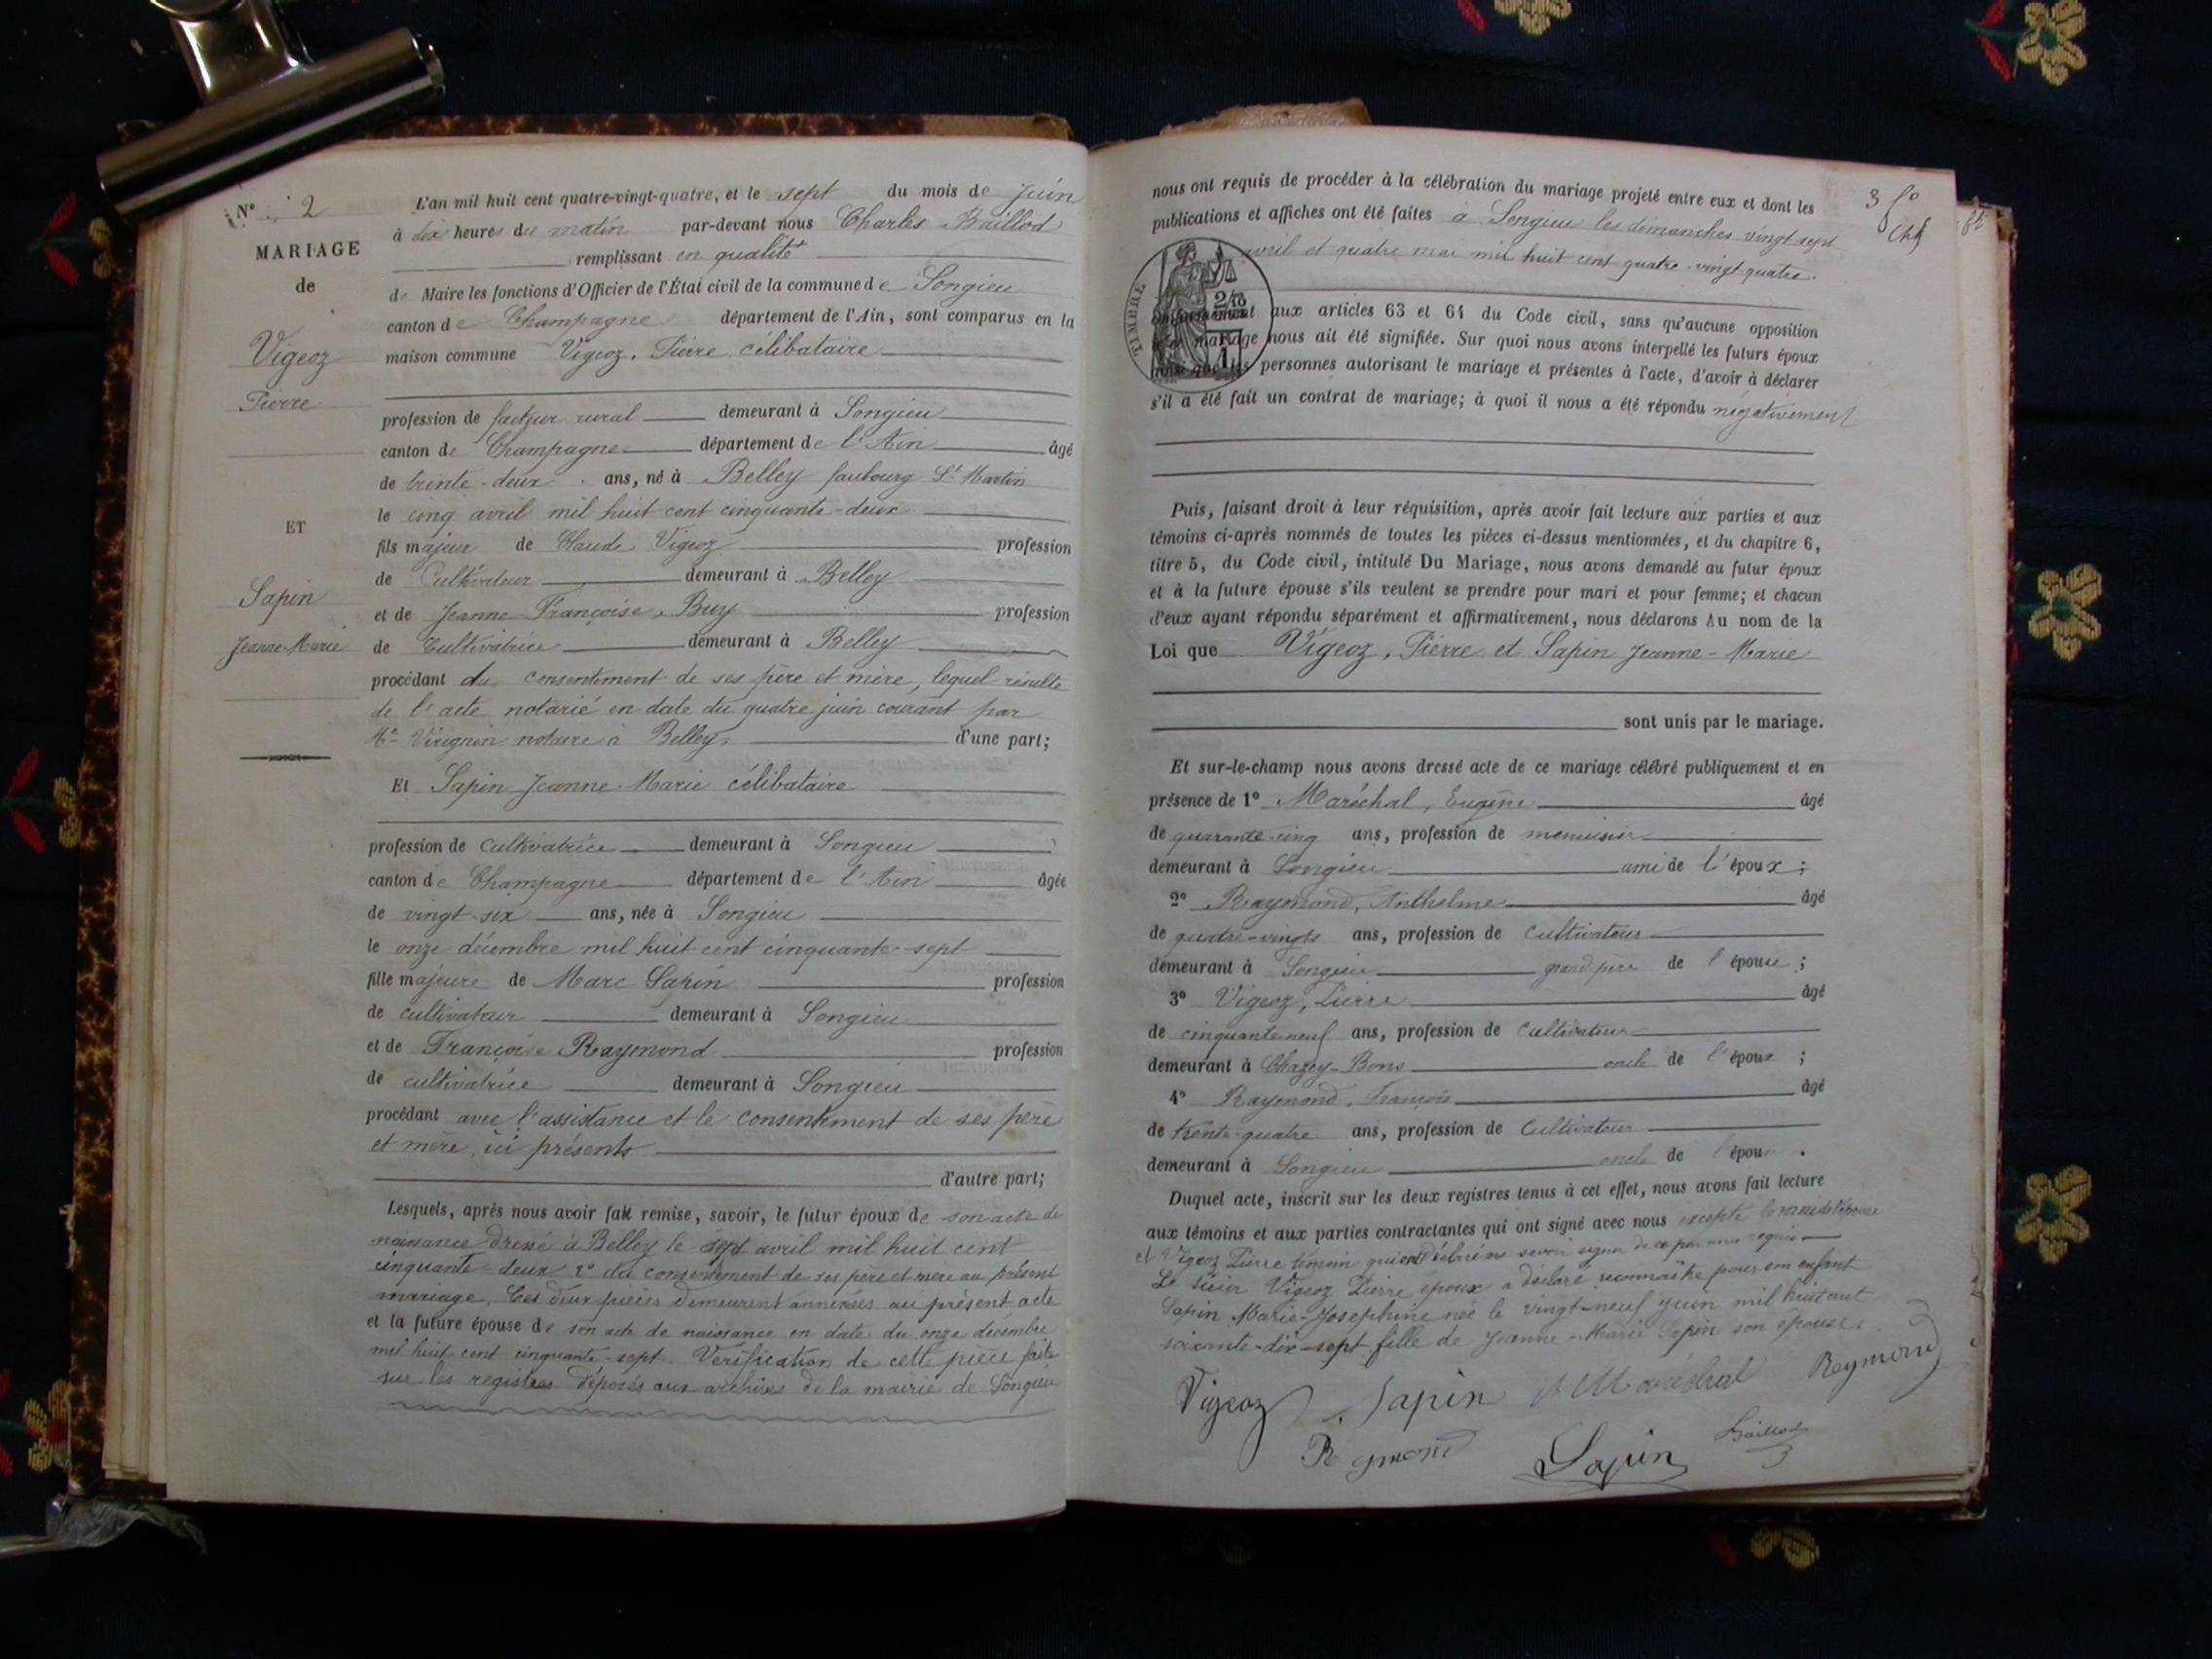 N° 2
MARIAGE
de
Vigeoz
Pierre
ET
Sapin
Jeanne-Marie
L'an mil huit cent quatre-vingt-quatre, et le sept du mois de Juin
à dix heures du matin par-devant nous Charles Baillod
remplissant en qualité
de Maire les fonctions d'Officier de l'État civil de la commune de Songieu
canton de Champagne département de l'Ain, sont comparus en la
maison commune Vigeoz, Pierre, célibataire
profession de facteur rural demeurant à Songieu
canton de Champagne département de l'Ain âgé
de trente-deux ans, né à Belley faubourg St Martin
le cinq avril mil huit cent cinquante-deux
fils majeur de Claude Vigeoz profession
de Cultivateur demeurant à Belley
et de Jeanne Françoise, Buy profession
de Cultivatrice demeurant à Belley
procédant du consentement de ses père et mère, lequel résulte
de l'acte notarié en date du quatre juin courant par
Me Virignin notaire à Belley, d'une part;
Et Sapin Jeanne-Marie célibataire
profession de cultivatrice demeurant à Songieu
canton de Champagne département de l'Ain âgée
de vingt-six ans, née à Songieu
le onze décembre mil huit cent cinquante-sept
fille majeure de Marc Sapin profession
de cultivateur demeurant à Songieu
et de Françoise Raymond profession
de cultivatrice demeurant à Songieu
procédant avec l'assistance et le consentement de ses père
et mère, ici présents
d'autre part;
Lesquels, après nous avoir fait remise, savoir, le futur époux de son acte de
naissance dressé à Belley le sept avril mil huit cent
cinquante-deux 2° du consentement de ses père et mère au présent
mariage. Ces deux pièces demeurent annexées au présent acte
et la future épouse de son acte de naissance en date du onze décembre
mil huit cent cinquante-sept. Vérification de cette pièce faite
sur les registres déposés aux archives de la mairie de Songieu
3 fo
nous ont requis de procéder à la célébration du mariage projeté entre eux et dont les
publications et affiches ont été faites à Songieu les dimanches vingt sept
avril et quatre mai mil huit cent quatre-vingt quatre.
TIMBRE
conformément aux articles 63 et 64 du Code civil, sans qu'aucune opposition
mariage nous ait été signifiée. Sur quoi nous avons interpellé les futurs époux
ainsi que les personnes autorisant le mariage et présentes à l'acte, d'avoir à déclarer
s'il a été fait un contrat de mariage; à quoi il nous a été répondu négativement
Puis, faisant droit à leur réquisition, après avoir fait lecture aux parties et aux
témoins ci-après nommés de toutes les pièces ci-dessus mentionnées, et du chapitre 6,
titre 5, du Code civil, intitulé Du Mariage, nous avons demandé au futur époux
et à la future épouse s'ils veulent se prendre pour mari et pour femme; et chacun
d'eux ayant répondu séparément et affirmativement, nous déclarons Au nom de la
Loi que Vigeoz, Pierre et Sapin Jeanne-Marie
sont unis par le mariage.
Et sur-le-champ nous avons dressé acte de ce mariage célébré publiquement et en
présence de 1° Maréchal, Eugène âgé
de quarante-cinq ans, profession de menuisier
demeurant à Songieu ami de l'époux;
2° Raymond, Anthelme âgé
de quatre-vingts ans, profession de cultivateur
demeurant à Songieu grand père de l'épouse;
3° Vigeoz, Pierre âgé
de cinquante neuf ans, profession de cultivateur
demeurant à Chazey-Bons oncle de l'époux;
4° Raymond, François âgé
de trente-quatre ans, profession de Cultivateur
demeurant à Songieu oncle de l'épou
Duquel acte, inscrit sur les deux registres tenus à cet effet, nous avons fait lecture
aux témoins et aux parties contractantes qui ont signé avec nous excepté la mère de l'épouse
et Vigeoz Pierre témoin qui ont déclaré ne savoir signer de ce par nous requis
Le sieur Vigeoz Pierre époux a déclaré reconnaître pour son enfant
Sapin Marie-Josephine née le vingt-neuf juin mil huit cent
soixante-dix-sept fille de Jeanne-Marie Sapin son épouse.
Vigeoz Sapin Maréchal Reymond
Reymond Sapin Baillod